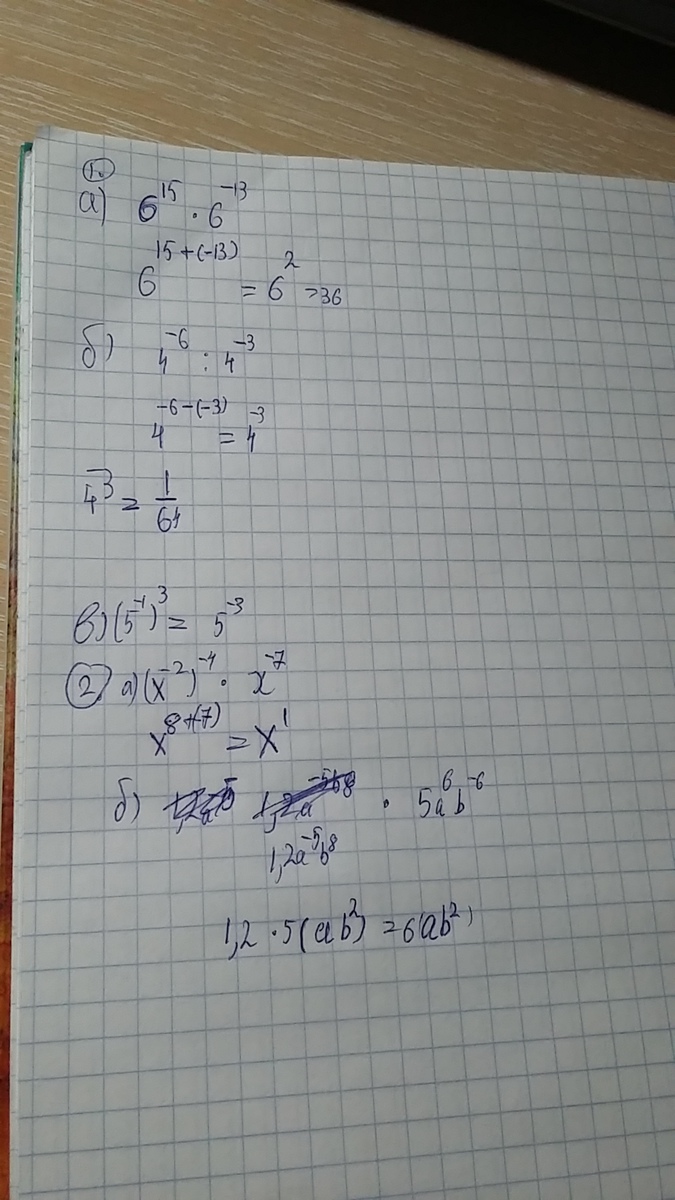 1.
а) 6^15 · 6^-13
6^15+(-13) = 6^2 = 36
б) 4^-6 : 4^-3
4^-6-(-3) = 4^-3
4^-3 = 1/64
в) (5^-1)^3 = 5^-3
2. а) (x^-2)^-4 · x^-7
x^8+(-7) = x^1
б) · 5a^6b^-6
1,2a^-5b^8
1,2 · 5(ab^2) = 6(ab^2)